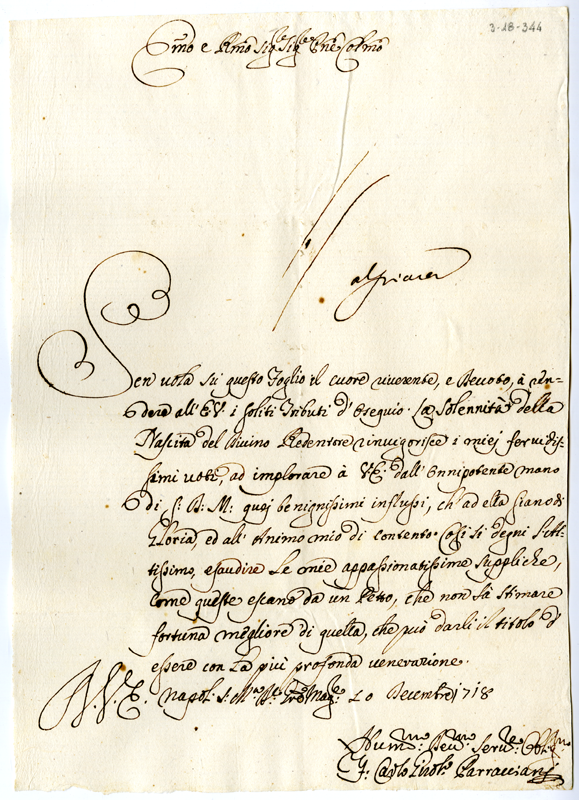 3-18-344
Emo e Rmo Sige Sige Pne Colmo
al Priore
Sen vola sù questo Foglio il cuore riverente, e Devoto, à ren-
dere all' E.V. i soliti Tributi d'Ossequio. La Solennità della
Nascita del Divino Redentore rinvigorisce i miej fervidis-
simi voti, ad implorare à V.E. dall' Onnipotente mano
di S: D: M: quej benignissimi influssi, ch' ad ella siano di
Gloria, ed all' Animo mio di contento. Così si degni
esaudire le mie appassionatissime suppliche,
come queste escano da un Petto, che non sà stimare
fortuna migliore di quella, che può darli il titolo d'
essere con la più profonda venerazione.
D. V. E. Napoli 20 Decembre 1718
Humo: Devmo: Serve: Oblmo
F. Carlo